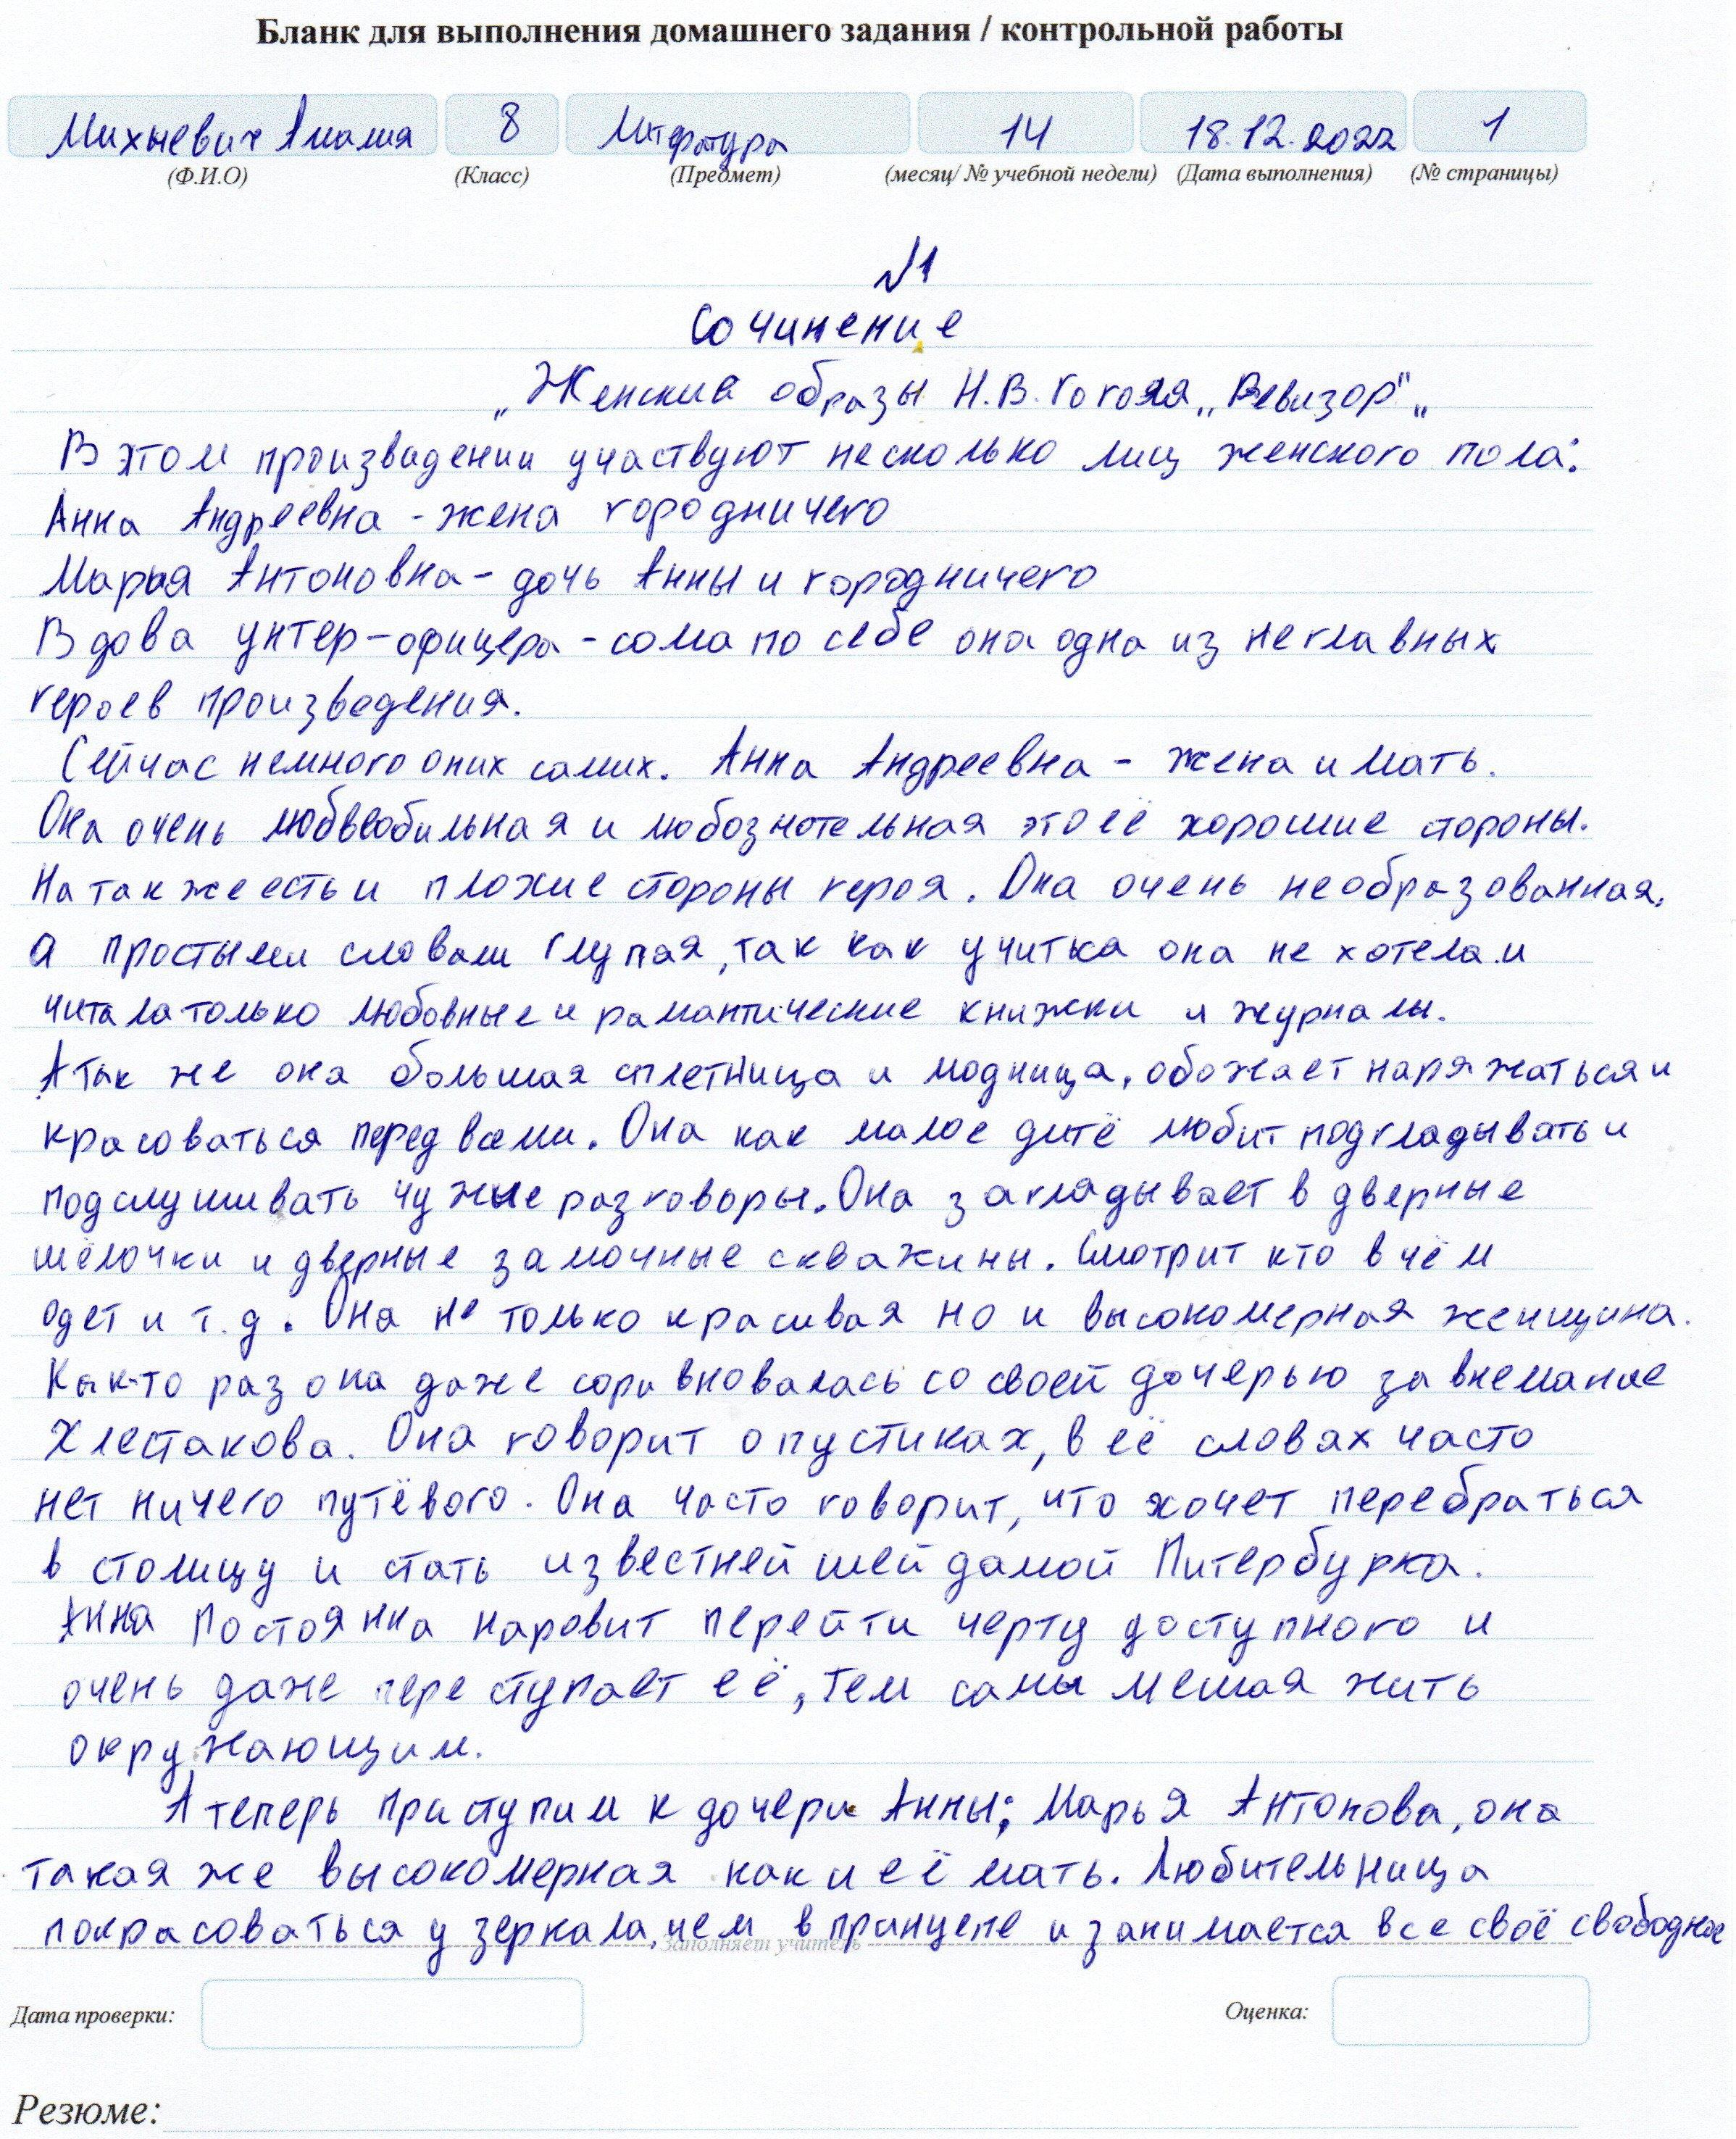 Бланк для выполнения домашнего задания / контрольной работы
Михневич Амалия 8 Литература 14 18.12.2022 1
(Ф.И.О) (Класс) (Предмет) (месяц/ № учебной недели) (Дата выполнения) (№ страницы)
№1
Сочинение
„Женские образы Н.В. Гоголя „Ревизор"„
В этом произвадении участвуют несколько лиц женского пола:
Анна Андреевна - жена городничего
Марья Антоновна - дочь Анны и городничего
Вдова унтер-офицера - сома по себе она одна из неглавных
героев произведения.
Сейчас немного о них самих. Анна Андреевна - жена и мать.
Она очень любвеобильная и любознотельная это её хорошие стороны.
На так же есть и плохие стороны героя. Она очень необразованная,
а простыми словами глупая, так как учитка она не хотела и
читала только любовные и рамантические книжки и журналы.
А так же она большая сплетница и модница, обожает наряжаться и
красоваться перед всеми. Она как малое дитё любит подгладывать и
подслушивать чужые разговоры. Она заглядывает в дверные
шёлочки и дверные замочные скважины. Смотрит кто в чём
одет и т.д. Она не только красивая но и высокомерная женщина.
Как-то раз она даже соривновалась со своей дочерью за внемание
Хлестакова. Она говорит о пустиках, в её словах часто
нет ничего путёвого. Она часто говорит, что хочет перебраться
в столицу и стать известнейшей дамой Питербурка.
Анна Постоянна наровит перейти черту доступного и
очень даже переступает её, тем самы мешая жить
окружающим.
А теперь приступим к дочери Анны; Марья Антонова, она
такая же высокомерная как и её мать. Любительница
покрасоваться у зеркала, чем в принцепе и занимается все своё свободное
Заполняет учитель
Дата проверки: Оценка:
Резюме: